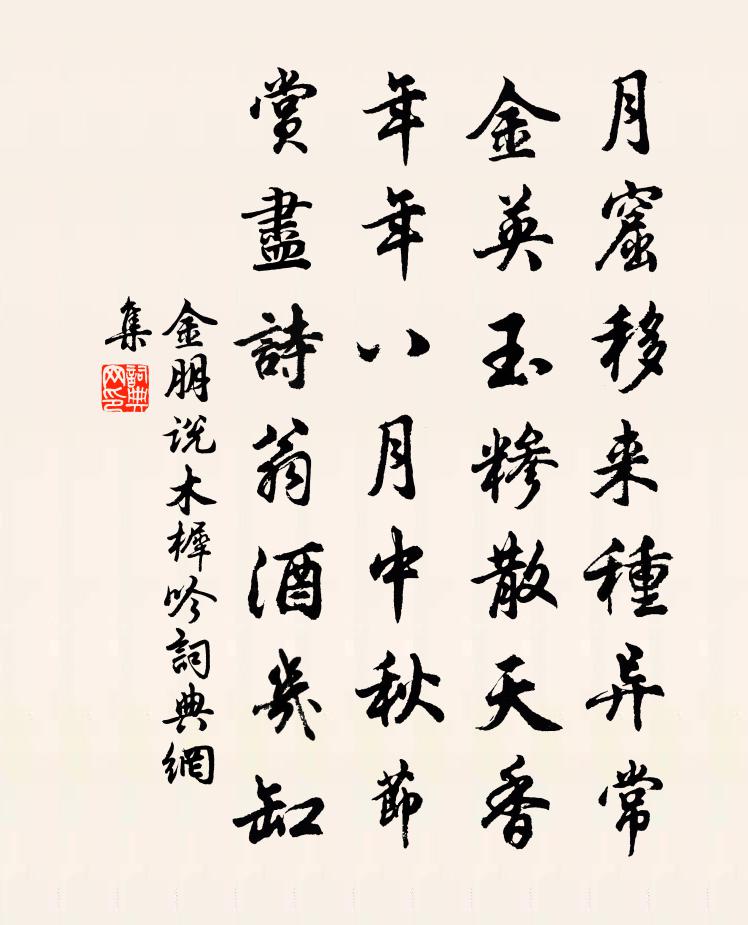 月窟移来種异常
金英玉糝散天香
年年八月中秋節
賞盡詩翁酒幾缸
金朋说木樨吟詞典網
集
詞典
网印